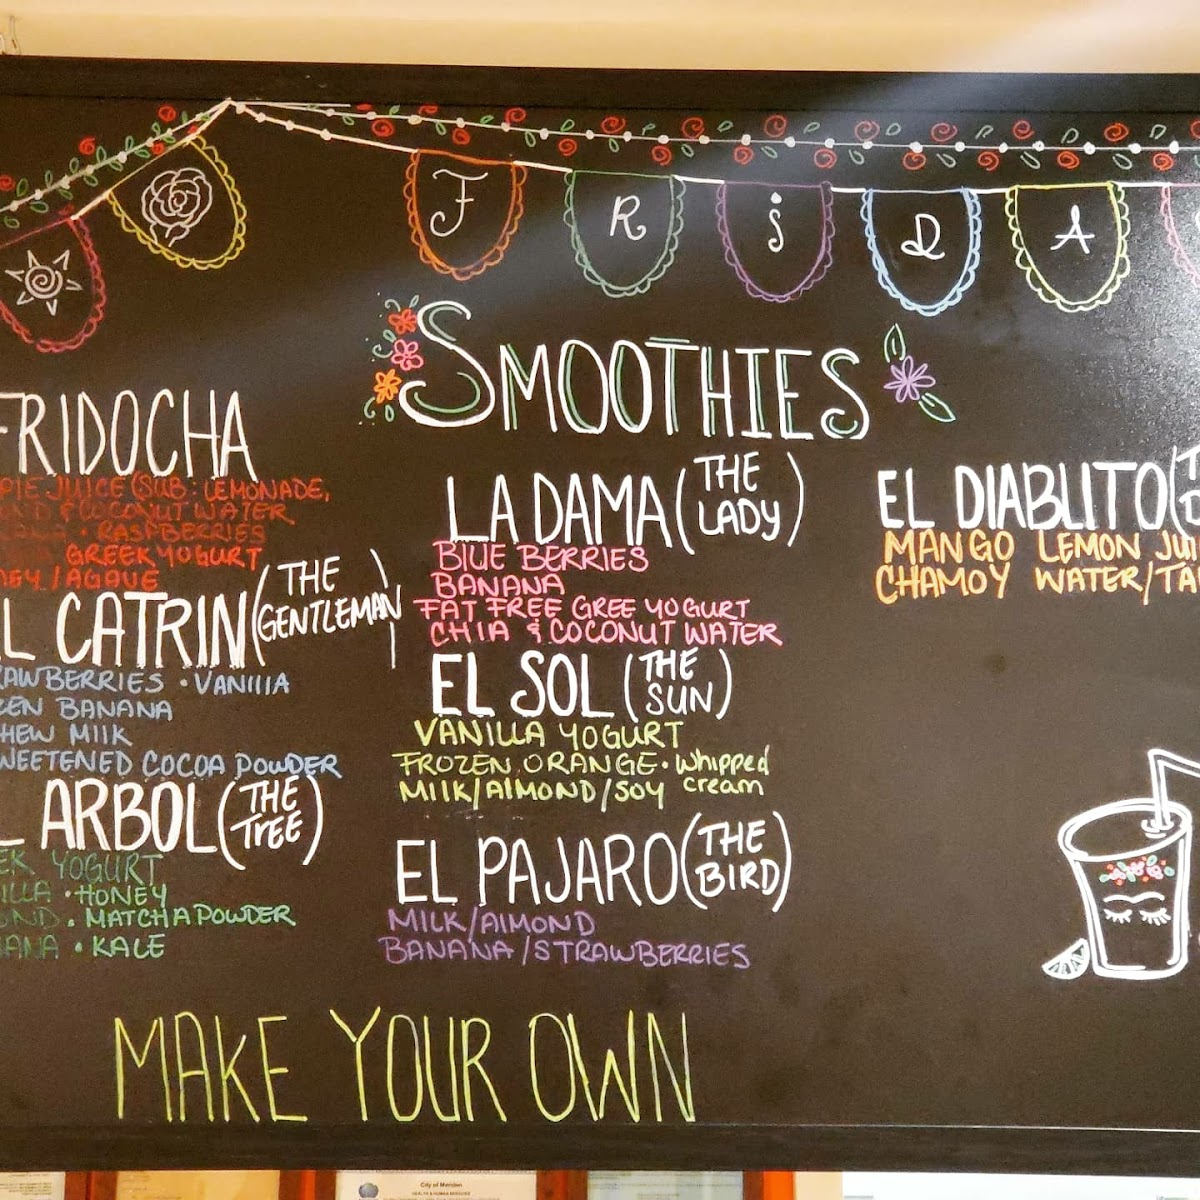 F R i D A
SMOOTHIES
FRIDOCHA
PIE JUICE (SUB: LEMONADE,
& COCONUT WATER
• RASPBERRIES
GREEK YOGURT
/AGAVE
EL CATRIN (THE GENTLEMAN)
RAWBERRIES • VANIllA
ZEN BANANA
HEW MIlK
WEETENED COCOA POWDER
ARBOL (THE TREE)
EK YOGURT
ILLA • HONEY
OND • MATCHA POWDER
NANA • KALE
LA DAMA (THE LADY)
BlUE BERRIES
BANANA
FAT FREE GREE YOGURT
CHIA & COCONUT WATER
EL SOL (THE SUN)
VANILLA YOGURT
FROZEN ORANGE • Whipped cream
MIlK/AlMOND/SOY
EL PAJARO (THE BIRD)
MILK/AlMOND
BANANA/STRAWBERRIES
EL DIABLITO (
MANGO LEMON JUI
CHAMOY WATER/TA
MAKE YOUR OWN
City of Meriden
HEALTH & HUMAN SERVICES